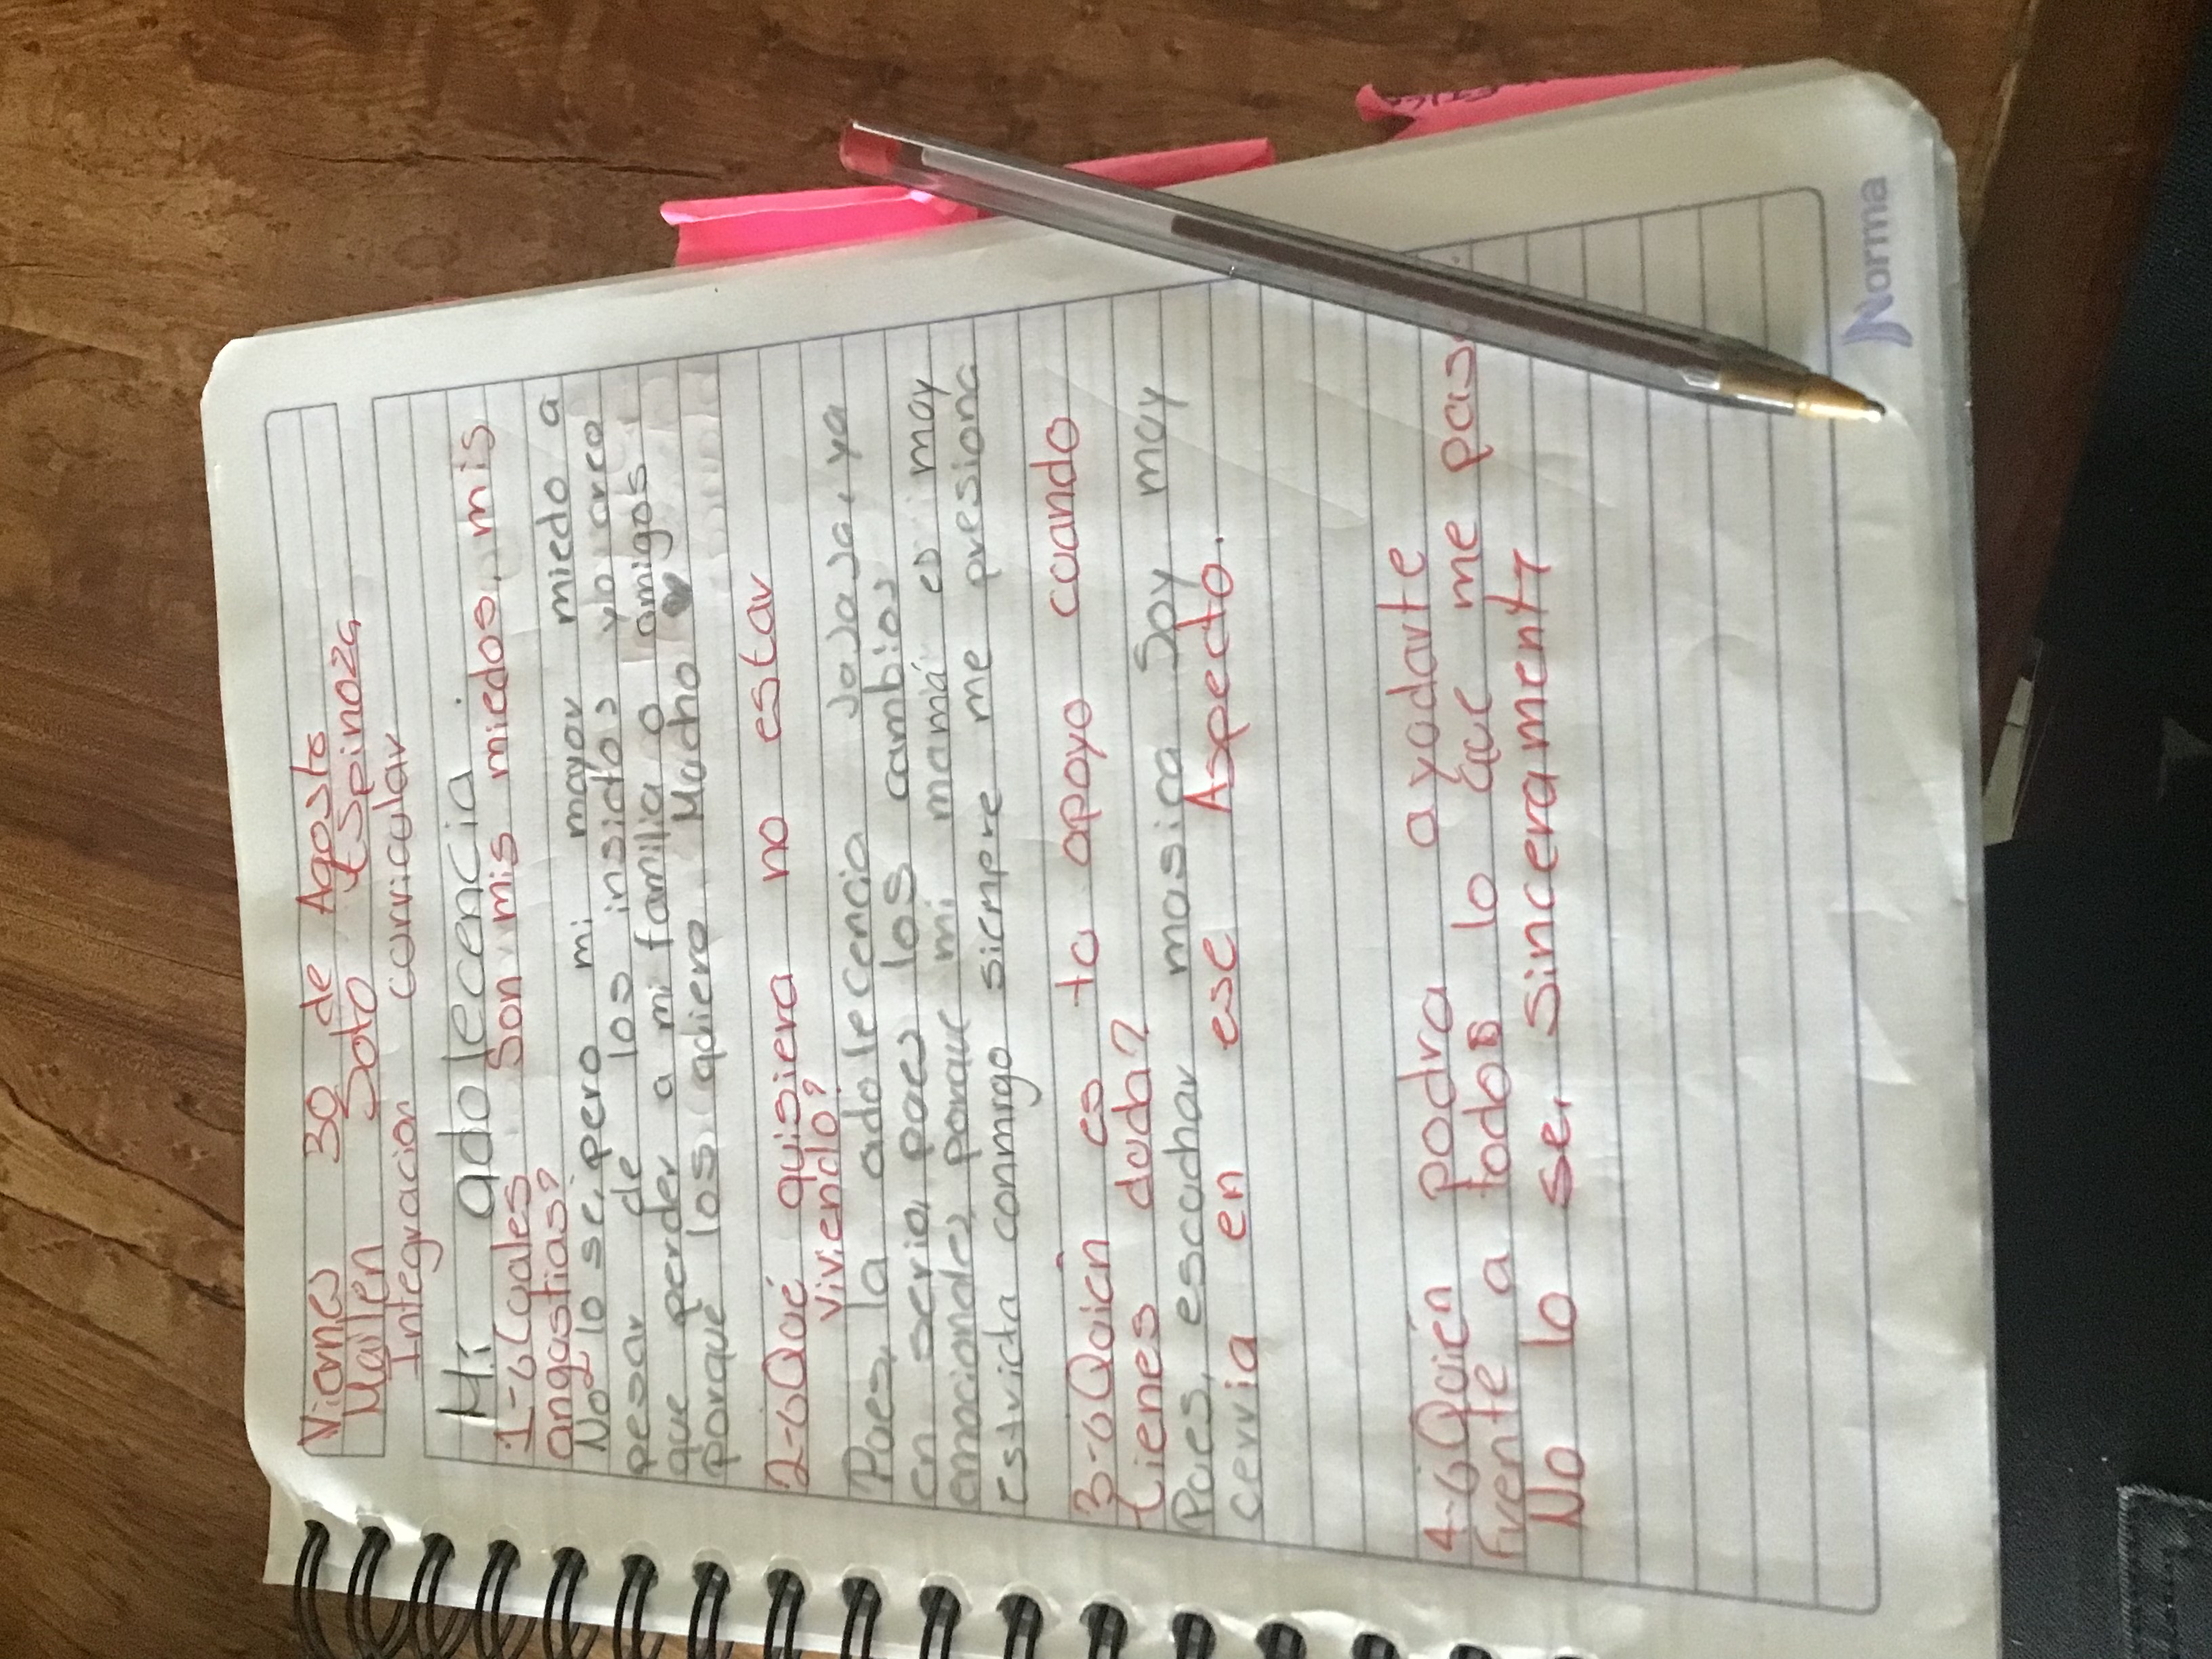 Viernes 30 de Agosto
Mailen Soto Espinoza
Integracion curricular
Mi adolecencia
1-¿Cuales son mis miedos, mis
angustias?
No lo se, pero mi mayor miedo a
pesar de los insictos yo creo
que perder a mi familia o amigos
porque los quiero Mucho ♥
2-¿Qué quisiera no estar
viviendo?
Pues, la adolecencia jajaja, ya
en serio, pues los cambios
emocionales porque mi mamá es muy
estricta conmigo siempre me presiona
3-¿Quién es tu apoyo cuando
tienes duda?
Pues, escuchar musica soy muy
cerria en ese Aspecto.
4-¿Quién podra ayudarte
frente a todo lo que me pasa
No lo se, sinceramente
Norma